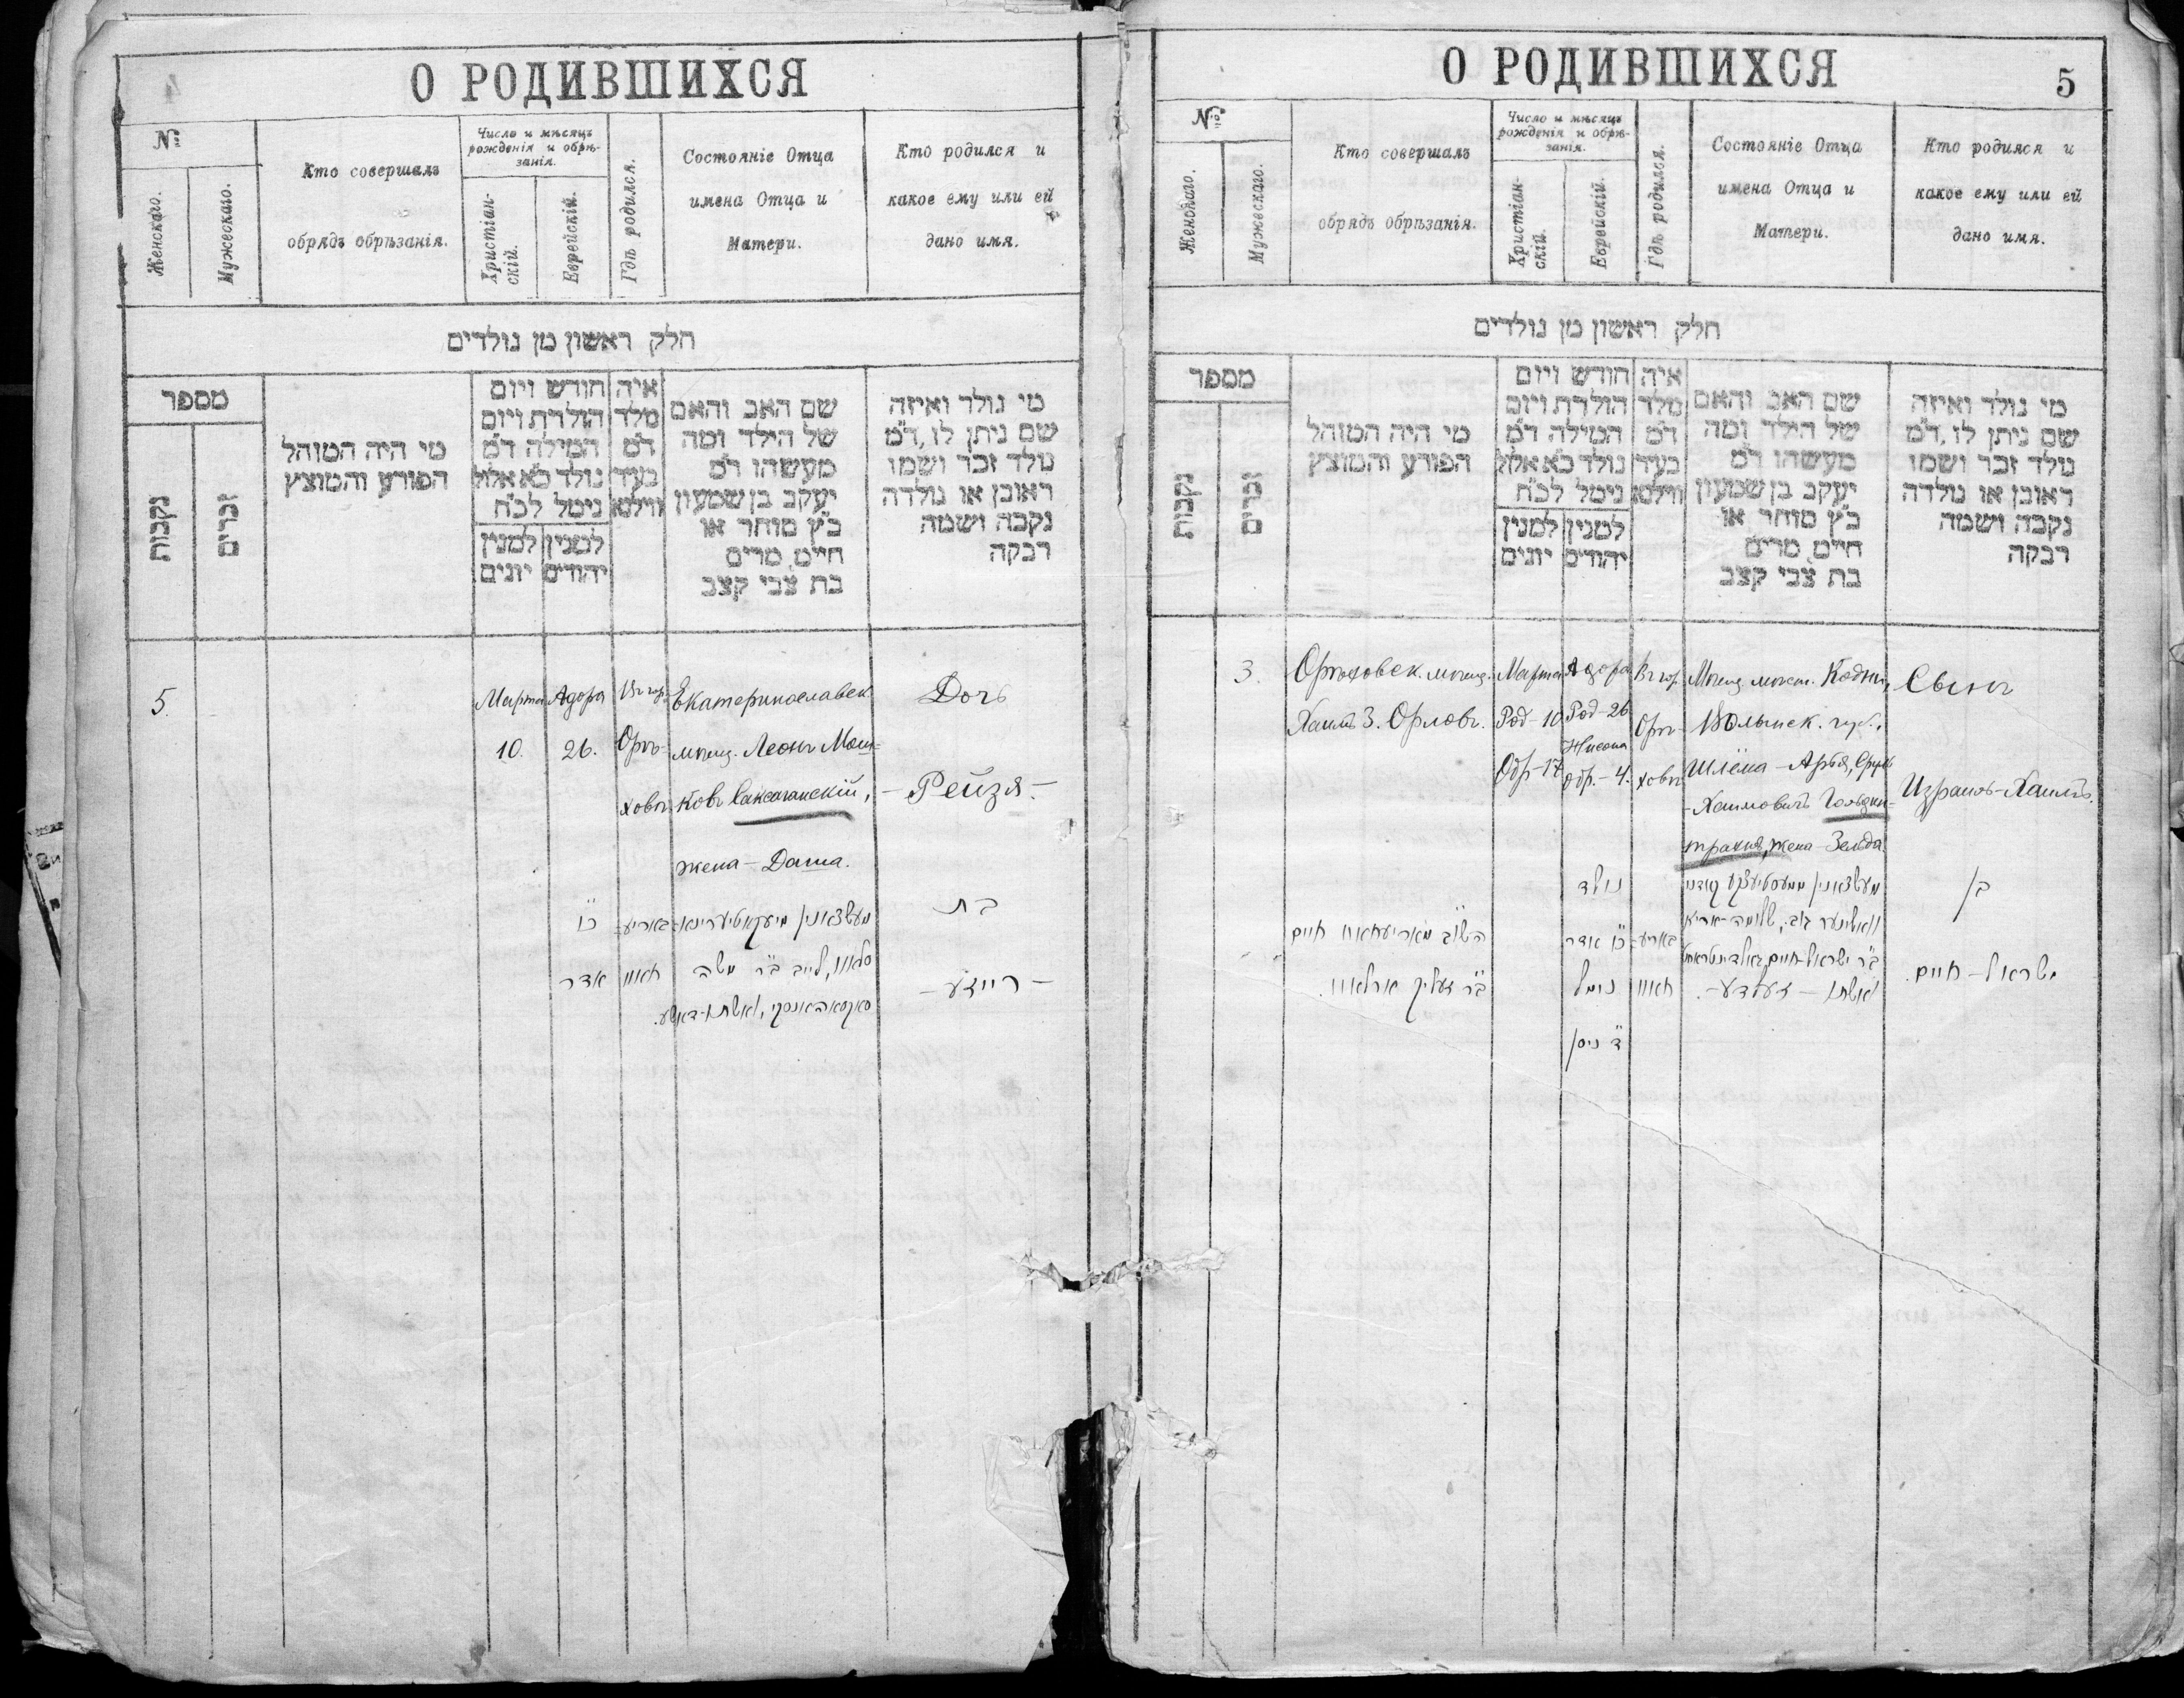 О РОДИВШИХСЯ
№
Женскаго.
Мужескаго.
Кто совершалъ
обрядъ обрѣзанія.
Число и мѣсяцъ
рожденія и обрѣ-
занія.
Христіан-
скій.
Еврейскій.
Гдѣ родился.
Состояніе Отца
имена Отца и
Матери.
Кто родился и
какое ему или ей
дано имя.
חלק ראשון מן נולדים
מספר
נקבות
זכרים
מי היה המוהל
הפורע והמוצץ
חודש ויום
הולדת ויום
המילה ד"מ
נולד כ"א אלול
נימל לכ"ח
למנין יהודים
למנין יונים
איה
מלד
ד"מ
בעיר
ווילנא
שם האב והאם
של הילד ומה
מעשהו ד"מ
יעקב בן שמעון
כ"ץ סוחר או
חיים, מרים
בת צבי קצב
מי נולד ואיזה
שם ניתן לו, ד"מ
נולד זכר ושמו
ראובן או נולדה
נקבה ושמה
רבקה
5.
Марта
10.
Адора
26.
Въ гор.
Орѣ-
ховѣ
Екатеринославск.
мѣщ. Леонъ Мош-
ковъ Саксаганскій,
жена - Даша.
Дочь
- Рейзя. -
כ"ו
אדר
בת
- רייזע -
О РОДИВШИХСЯ
5
№
Женскаго.
Мужескаго.
Кто совершалъ
обрядъ обрѣзанія.
Число и мѣсяцъ
рожденія и обрѣ-
занія.
Христіан-
скій.
Еврейскій.
Гдѣ родился.
Состояніе Отца
имена Отца и
Матери.
Кто родился и
какое ему или ей
дано имя.
חלק ראשון מן נולדים
מספר
נקבות
זכרים
מי היה המוהל
הפורע והמוצץ
חודש ויום
הולדת ויום
המילה ד"מ
נולד כ"א אלול
נימל לכ"ח
למנין יהודים
למנין יונים
איה
מלד
ד"מ
בעיר
ווילנא
שם האב והאם
של הילד ומה
מעשהו ד"מ
יעקב בן שמעון
כ"ץ סוחר או
חיים, מרים
בת צבי קצב
מי נולד ואיזה
שם ניתן לו, ד"מ
נולד זכר ושמו
ראובן או נולדה
נקבה ושמה
רבקה
3.
Орѣховск. мѣщ.
Хаимъ З. Орловъ.
Марта
Род - 10
Обр - 17
Адора
Род - 26
Нисона
обр. - 4.
Въ гор.
Орѣ-
ховѣ
Мѣщ. мѣст. Кодни,
Волынск. губ.,
Шлёма - Арья, Сруль
- Хаимовичъ
жена - Зельда.
Сынъ
Израиль - Хаимъ.
חיים
נולד
כ"ו אדר
נימל
ד' ניסן
ואשתו - זעלדע -.
בן
ישראל - חיים.